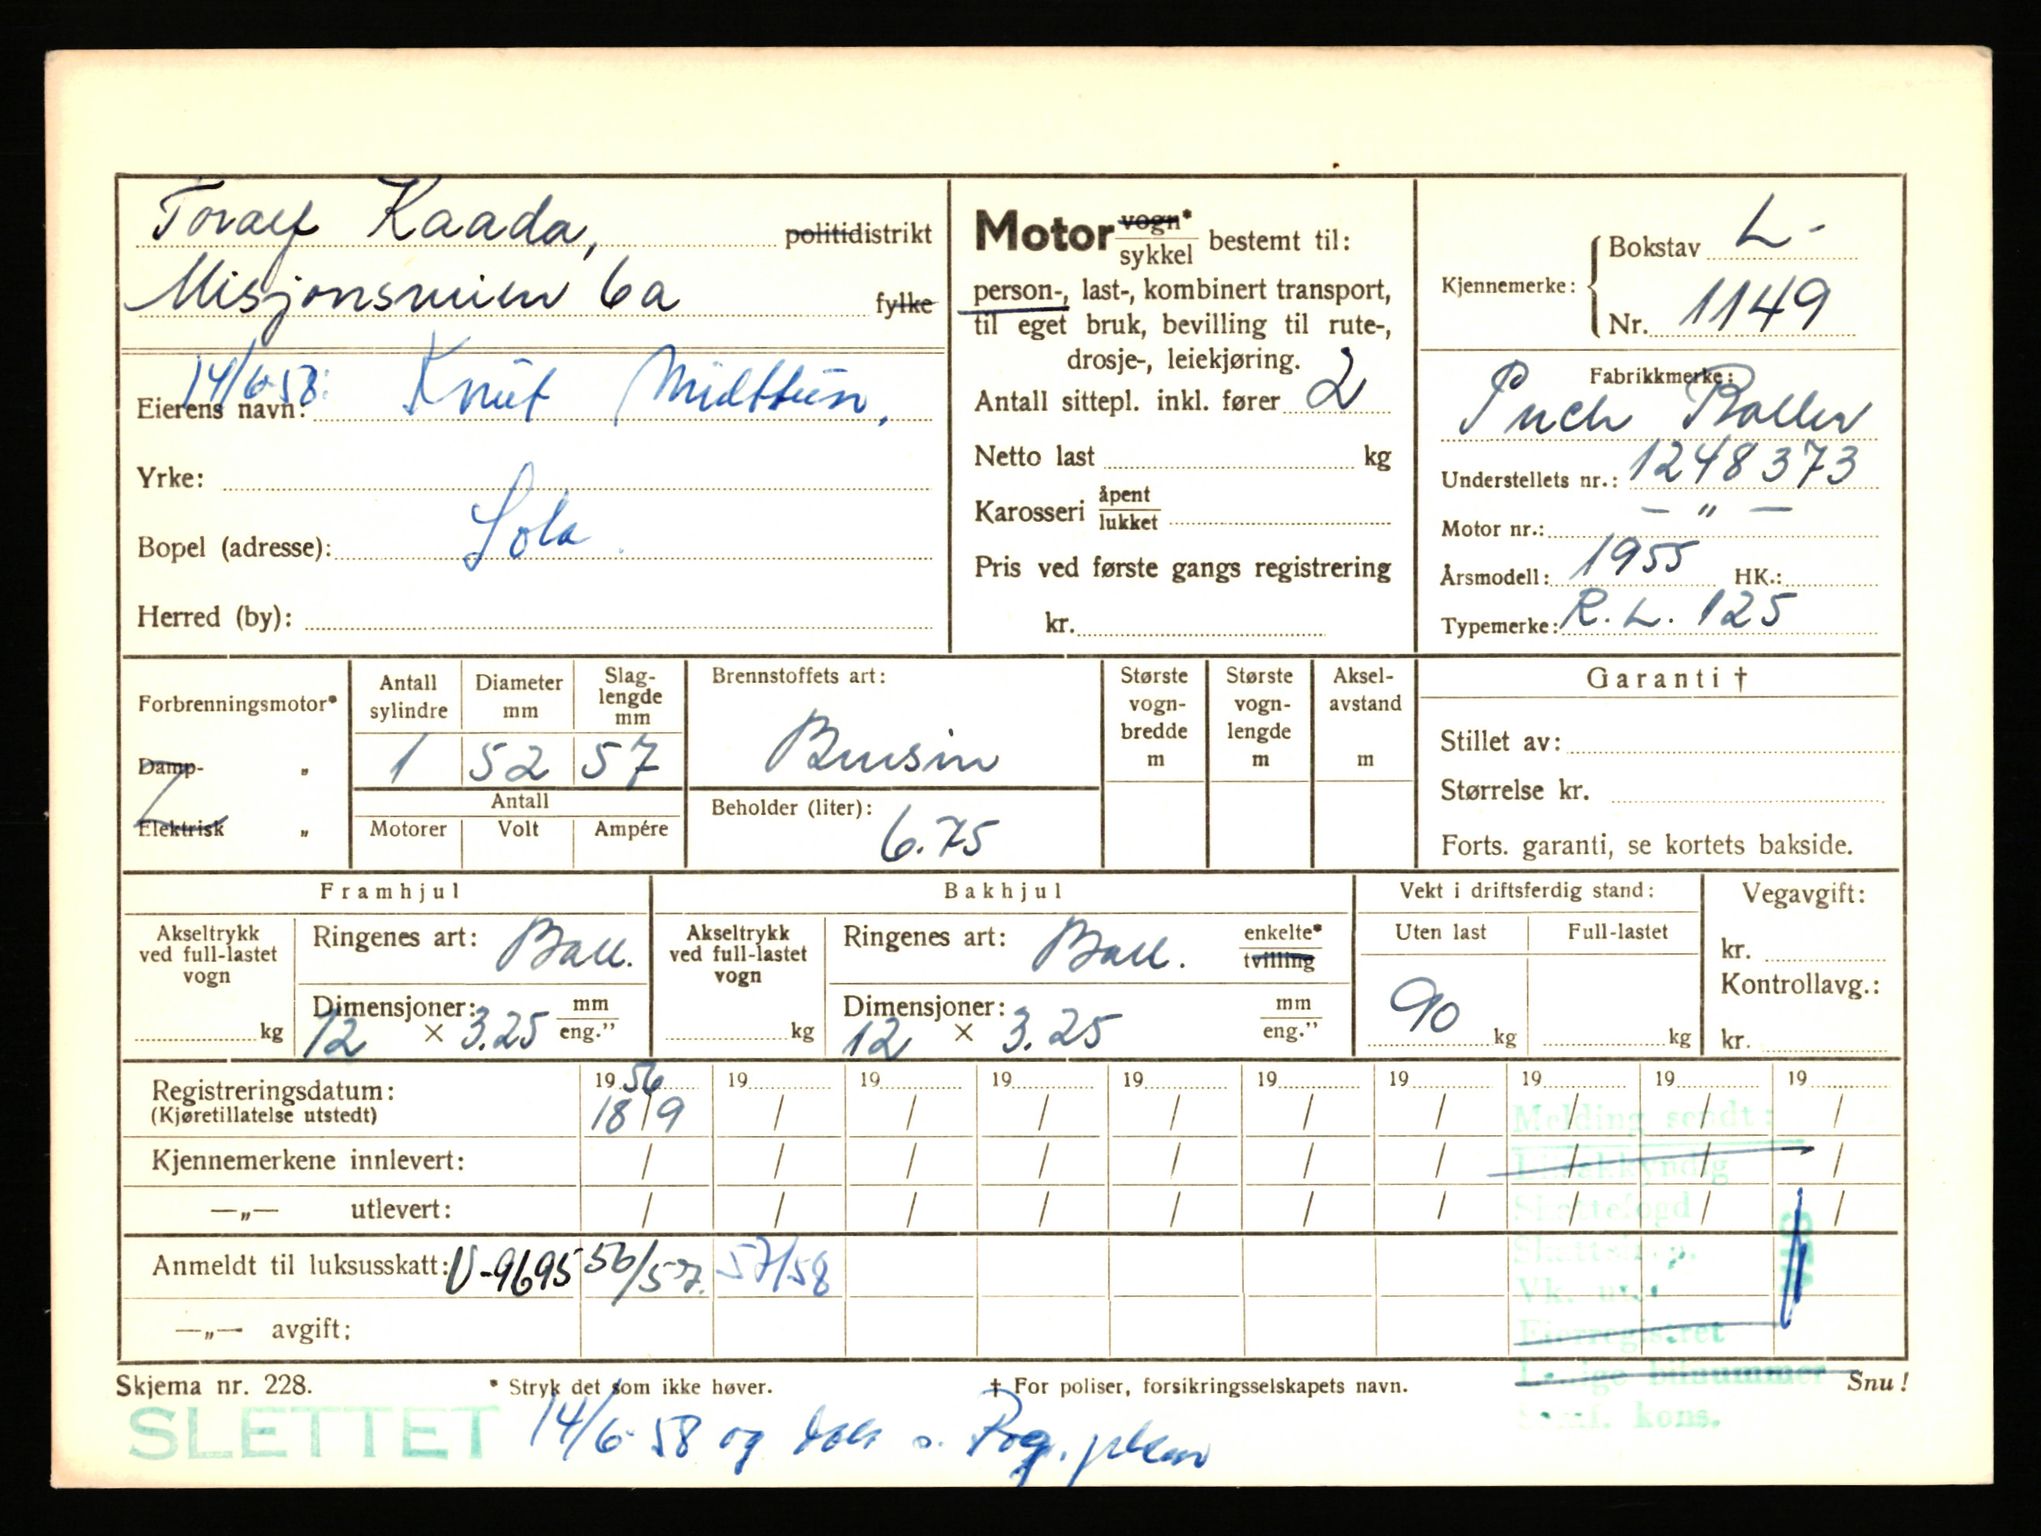 Toralf Kaada, politidistrikt
Misjonsveien 6a fylke
14/6-58: Knut Midttun,
Eierens navn:
Yrke:
Bopel (adresse): Sola
Herred (by):
Motor vogn* / sykkel bestemt til:
person-, last-, kombinert transport,
til eget bruk, bevilling til rute-,
drosje-, leiekjøring.
Antall sittepl. inkl. fører 2
Netto last kg
Karosseri åpent / lukket
Pris ved første gangs registrering
kr.
Kjennemerke: Bokstav L-
Nr. 1149
Fabrikkmerke:
Puch Roller
Understellets nr.: 1248373
Motor nr.: — " —
Årsmodell: 1955 HK.:
Typemerke: R.L. 125
Forbrenningsmotor*
Damp- "
Elektrisk "
Antall sylindre Diameter mm Slaglengde mm
1 52 57
Antall
Motorer Volt Ampére
Brennstoffets art:
Bensin
Beholder (liter):
6.75
Største vognbredde m
Største vognlengde m
Akselavstand m
Garanti †
Stillet av:
Størrelse kr.
Forts. garanti, se kortets bakside.
Framhjul
Akseltrykk ved full-lastet vogn kg
Ringenes art: Ball.
Dimensjoner: mm
12 × 3.25 eng."
Bakhjul
Akseltrykk ved full-lastet vogn kg
Ringenes art: Ball. enkelte* / tvilling
Dimensjoner: mm
12 × 3.25 eng."
Vekt i driftsferdig stand:
Uten last Full-lastet
90 kg kg
Vegavgift:
kr.
Kontrollavg.:
kr.
Registreringsdatum: 1956 19 19 19 19 19 19 19 19 19
(Kjøretillatelse utstedt) 18/9 / / / / / / / / /
Kjennemerkene innlevert: / / / / / / / / / /
—„— utlevert: / / / / / / / / / /
Anmeldt til luksusskatt: U-9695 56/57. 57/58
—„— avgift:
Melding sendt:
Bilsakkyndig
Skattefogd
Eierregistret
Ledige bilnummer
kons.
Skjema nr. 228. * Stryk det som ikke høver. † For poliser, forsikringsselskapets navn. Snu!
SLETTET 14/6-58 og